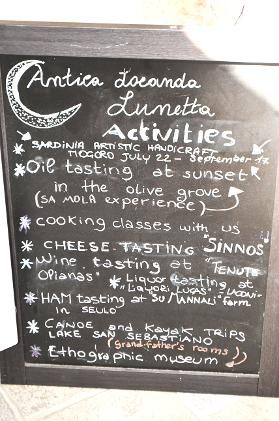 Antica Locanda
Lunetta
Activities
SARDINIA ARTISTIC HANDICRAFT
MOGORO JULY 22 - September 17
Oil tasting at sunset
in the olive grove
(SA MOLA experience)
cooking classes with us
CHEESE TASTING "SINNOS"
Wine tasting at "TENUTE
OPIANAS"
Liquor tasting at
"LIQUORI LUGAS" - LACONI-
HAM tasting at "SU MANNAU" farm
in SEULO
CANOE and KAYAK TRIPS
LAKE SAN SEBASTIANO
(grand-father's rooms)
Ethographic museum